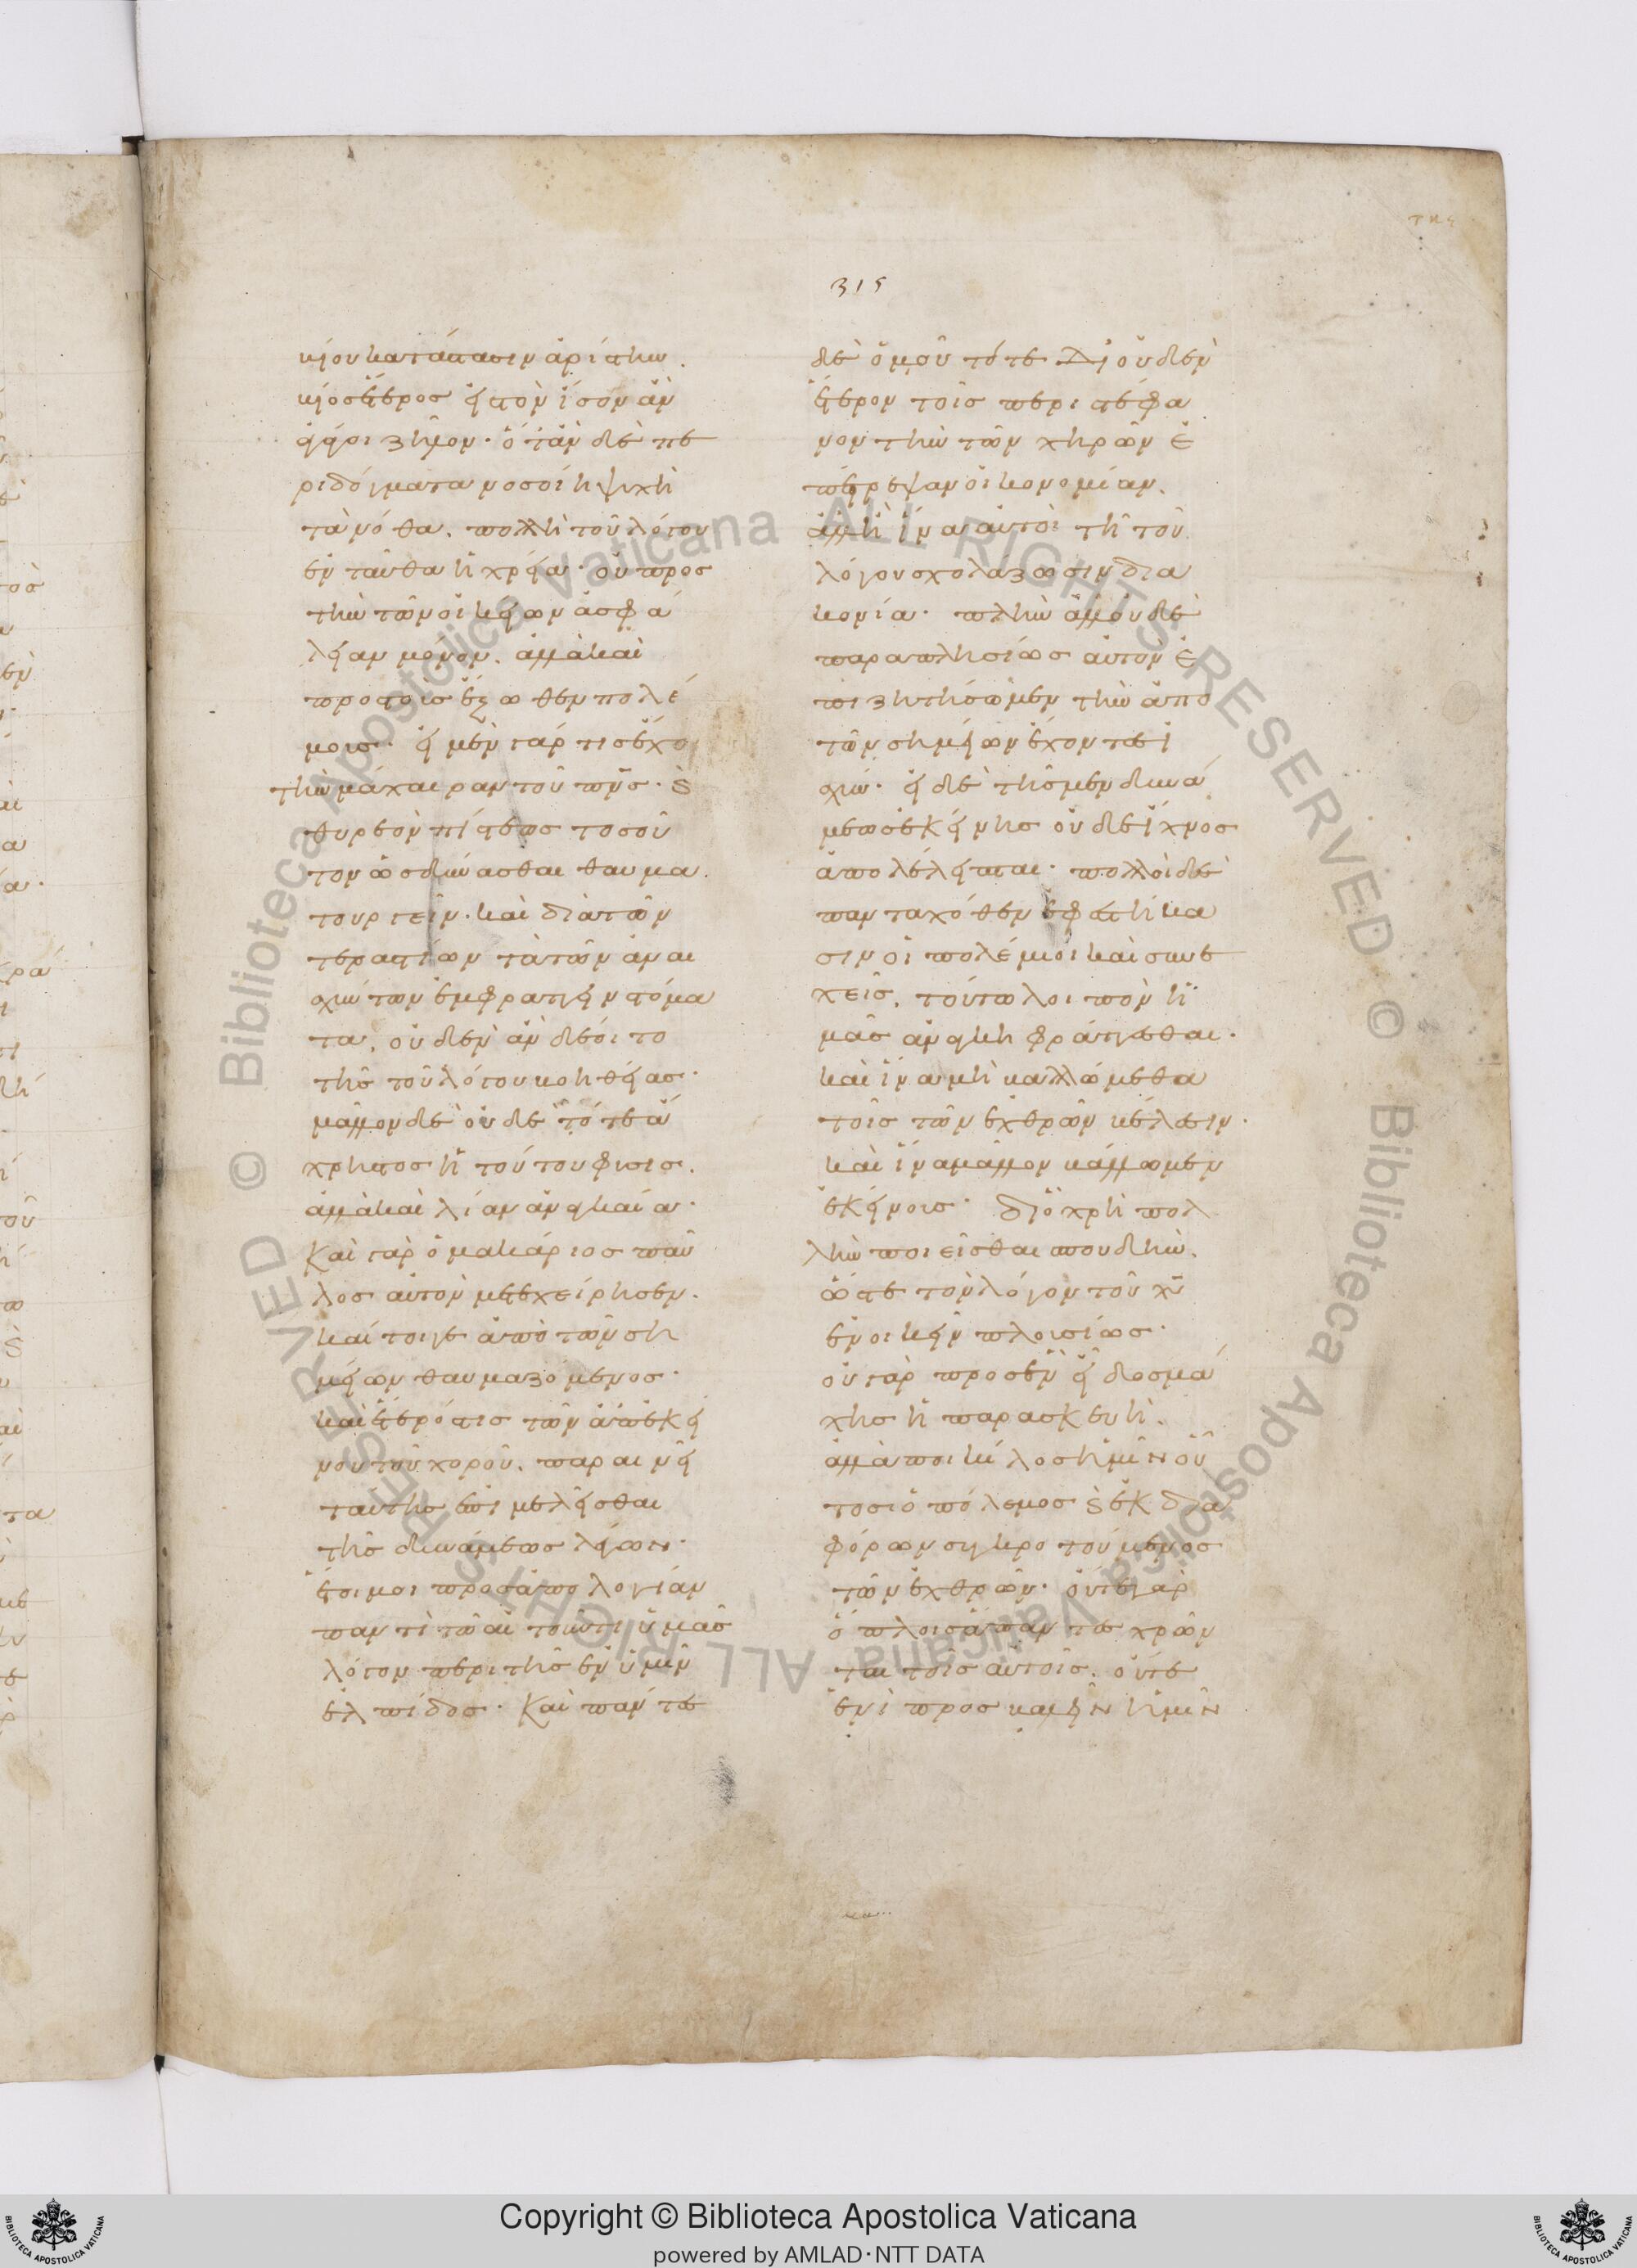 315
βίου κατάστασιν ἀρίστην.
βίος ἕτερος εἰς τὸν ἴσον ἂν
ἀγάγοι ζῆλον· ὅταν δὲ πε
ρὶ δόγματα νοσοῖ ἡ ψυχὴ
τὰ νόθα. πολλὴ τοῦ λόγου
ἐνταῦθα ἡ χρεία· οὐ πρὸς
τὴν τῶν οἰκείων ἀσφά
λειαν μόνον. ἀλλὰ καὶ
πρὸς τοὺς ἔξωθεν πολέ
μους· εἰ μὲν γάρ τις ἔχοι
τὴν μάχαιραν τοῦ πνς· ϗ
θυρεὸν πίστεως τοσοῦ
τον ὡς δύνασθαι θαυμα
τουργεῖν· καὶ διὰ τῶν
τεραστίων τὰ τῶν ἀναι
σχύντων ἐμφράττειν στόμα
τα. οὐδὲν ἂν δέοι το
τῆς τοῦ λόγου βοηθείας·
μᾶλλον δὲ οὐδὲ τότε ἄ
χρηστος ἡ τούτου φύσις.
ἀλλὰ καὶ λίαν ἀναγκαία·
Καὶ γὰρ ὁ μακάριος παῦ
λος αὐτὸν μετεχείρησεν.
καίτοιγε ἀπὸ τῶν ση
μείων θαυμαζόμενος·
καὶ ἕτερός τις τῶν ἀπ' ἐκεί
νου τοῦ χοροῦ. παραινεῖ
ταύτης ἐπιμελεῖσθαι
τῆς δυνάμεως λέγων·
ἕτοιμοι πρὸς ἀπολογίαν
παντὶ τῶ αἰτοῦντι ὑμᾶς
λόγον περὶ τῆς ἐν ὑμῖν
ἐλπίδος· Καὶ πάντες
δὲ ὁμοῦ τότε Δι' οὐδὲν
ἕτερον τοῖς περὶ στέφα
νον τὴν τῶν χηρῶν ἐ
πέτρεψαν οἰκονομίαν.
ἀλλ' ἢ ἵνα αὐτοὶ τῆ τοῦ
λόγου σχολάζωσιν δια
κονία· πλὴν ἀλλ' οὐδὲ
παραπλησίως αὐτὸν ἐ
πιζητήσωμεν τὴν ἀπὸ
τῶν σημείων ἔχοντες ἰ
σχύν· εἰ δὲ τῆς μὲν δυνά
μεως ἐκείνης οὐδὲ ἴχνος
ἀπολέλειπται· πολλοὶ δὲ
πανταχόθεν ἐφεστήκα
σιν οἱ πολέμιοι καὶ συνε
χεῖς. τούτω λοιπὸν ἡ
μᾶς ἀνάγκη φράττεσθαι·
καὶ ἵνα μὴ βαλλώμεθα
τοῖς τῶν ἐχθρῶν βέλεσιν·
καὶ ἵνα μᾶλλον βάλλωμεν
ἐκείνους· Διὸ χρὴ πολ
λὴν ποιεῖσθαι σπουδὴν.
ὥστε τὸν λόγον τοῦ χυ
ἐνοικεῖν πλουσίως·
οὐ γὰρ πρὸς ἓν εἶδος μά
χης ἡ παρασκευὴ.
ἀλλὰ ποικίλος ἡμῖν οὗ
τος ὁ πόλεμος ϗ ἐκ δια
φόρων συγκροτούμενος
τῶν ἐχθρῶν· οὔτε γὰρ
ὅπλοις ἅπαντες χρῶν
ται τοῖς αὐτοῖς. οὔτε
ἑνὶ προσβαλεῖν ἡμῖν